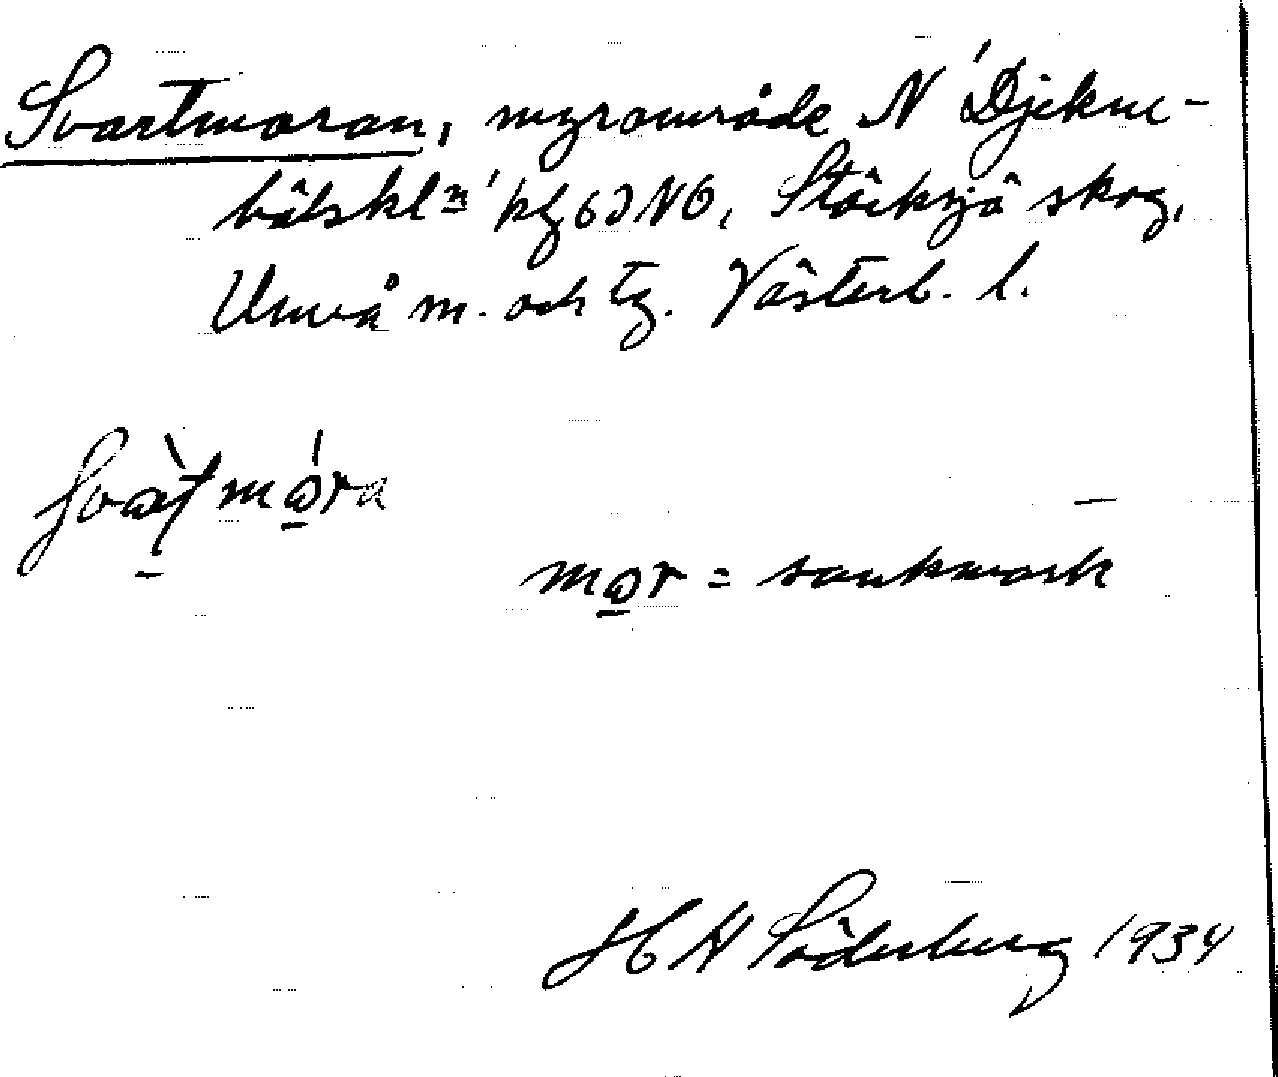 Svartmoran, myrområde N 'Djekne-
bålskln' kg 63 NO, Stöcksjö skog,
Umeå m. och tg. Västerb. l.
mor = sankmark
H H Söderberg 1934